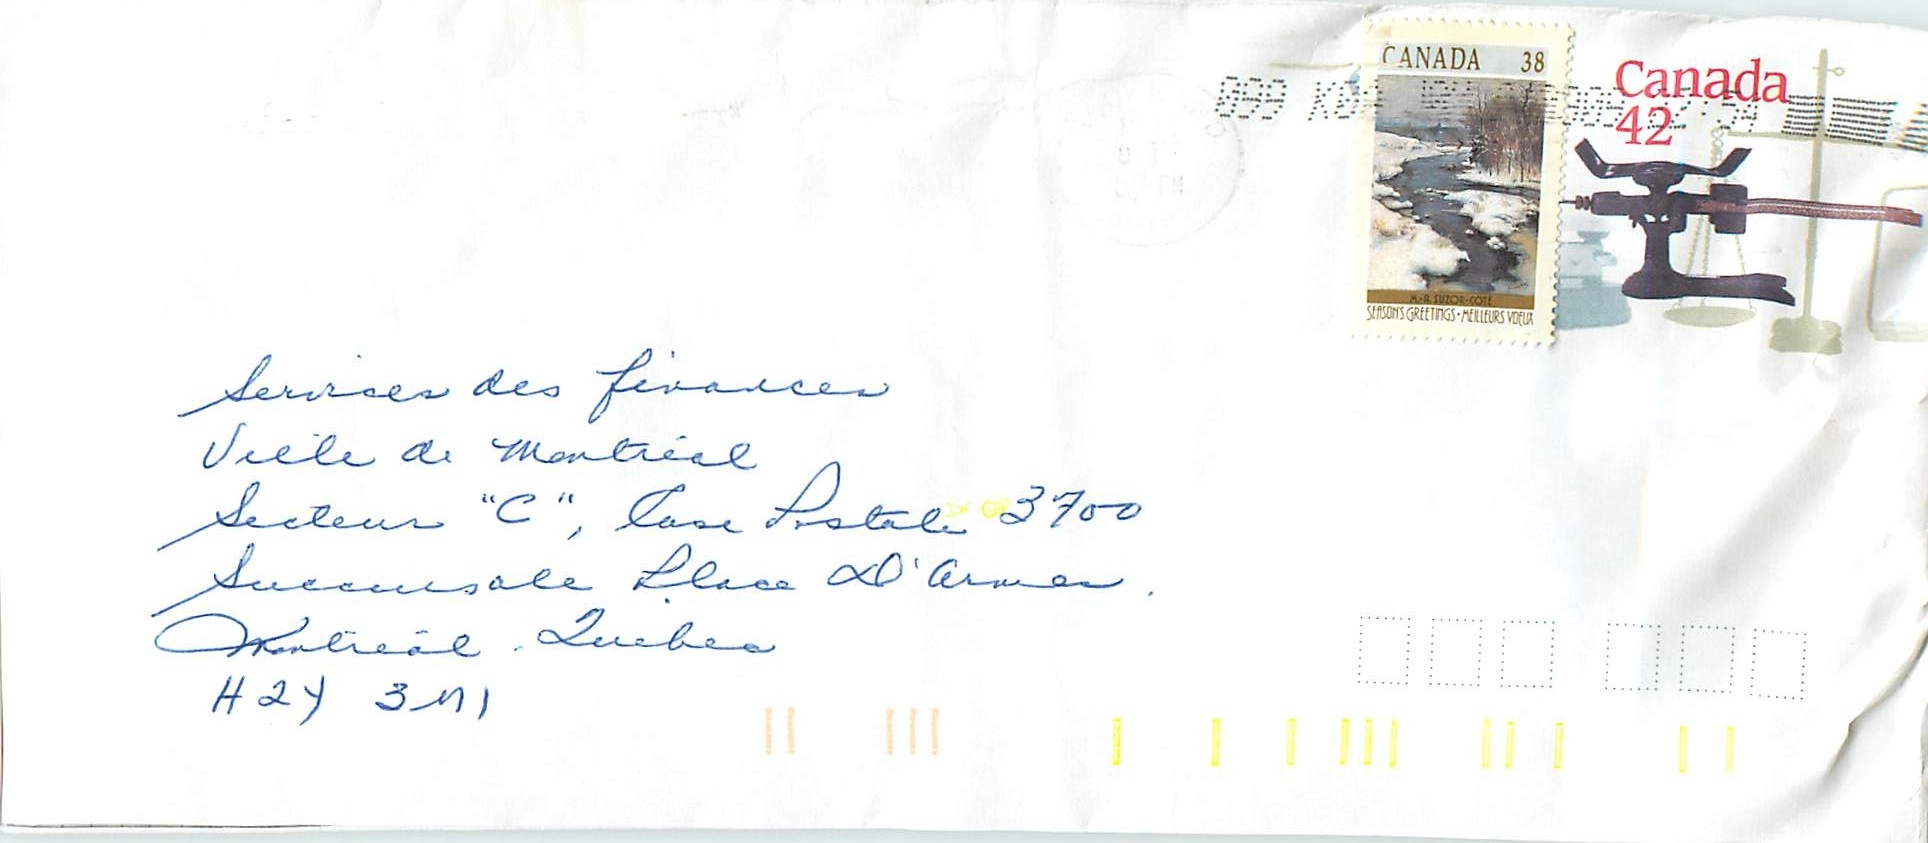 CANADA 38
Canada
42
M.-A. SUZOR-COTÉ
SEASON'S GREETINGS • MEILLEURS VOEUX
Services des finances
Ville de Montréal
Secteur "C", Case Postale 3700
Succursale Place D'Armes.
Montréal. Quebec
H2Y 3M1